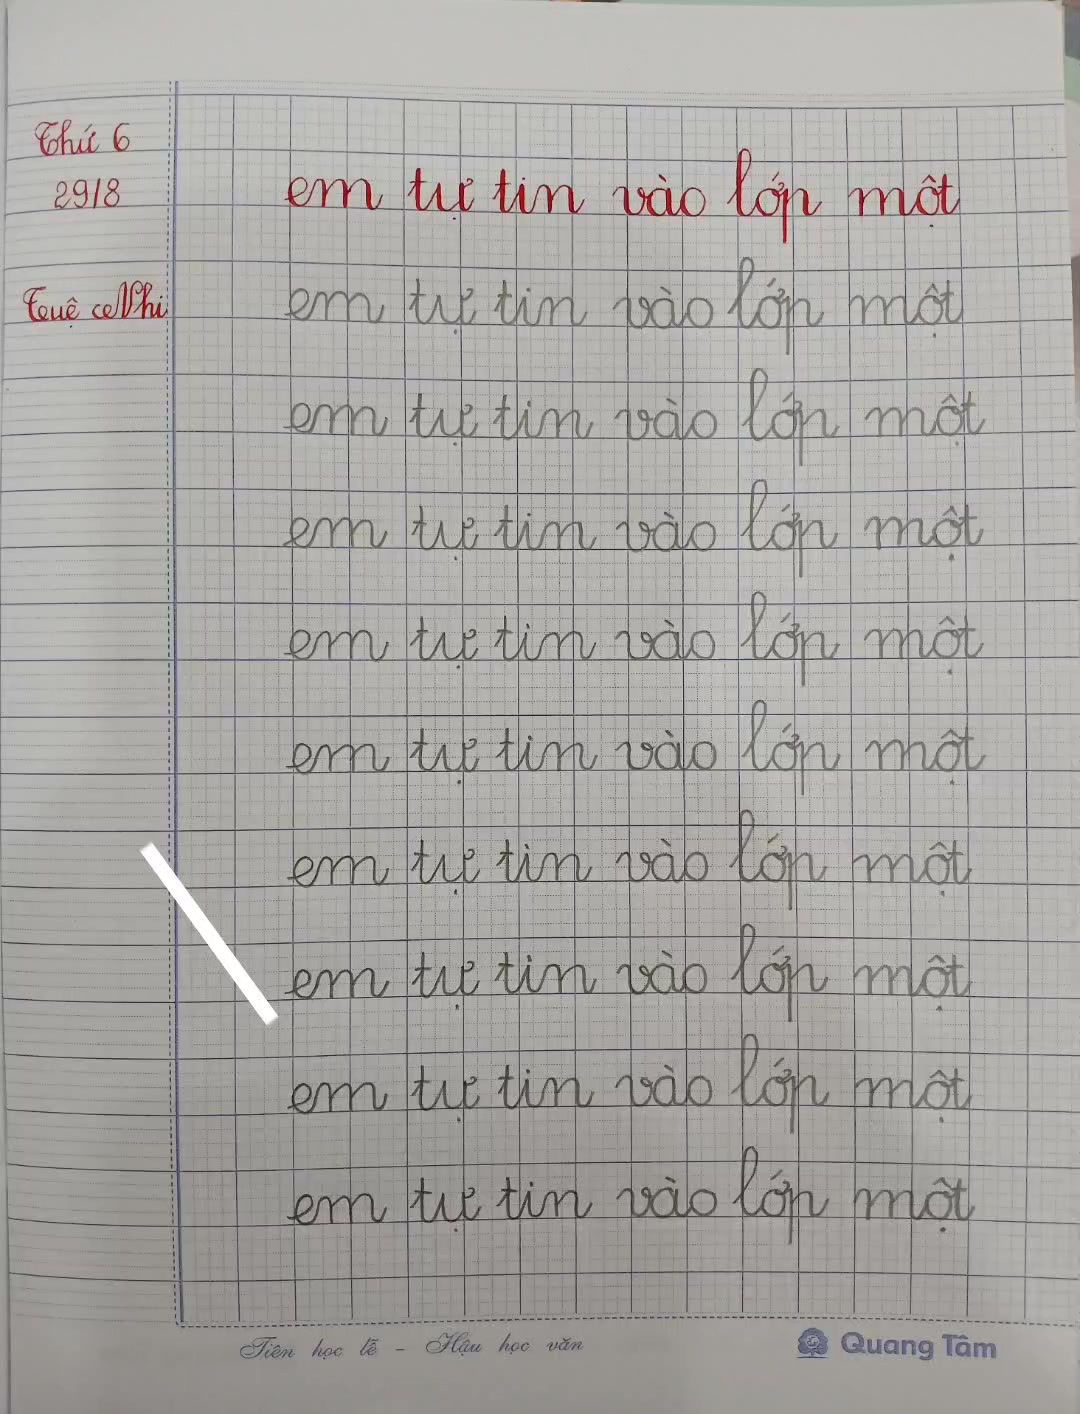 Thứ 6
29/8
em tự tin vào lớp một
Tuệ Nhi
em tự tin vào lớp một
em tự tin vào lớp một
em tự tin vào lớp một
em tự tin vào lớp một
em tự tin vào lớp một
em tự tin vào lớp một
em tự tin vào lớp một
em tự tin vào lớp một
em tự tin vào lớp một
Tiên học lễ - Hậu học văn
Quang Tâm